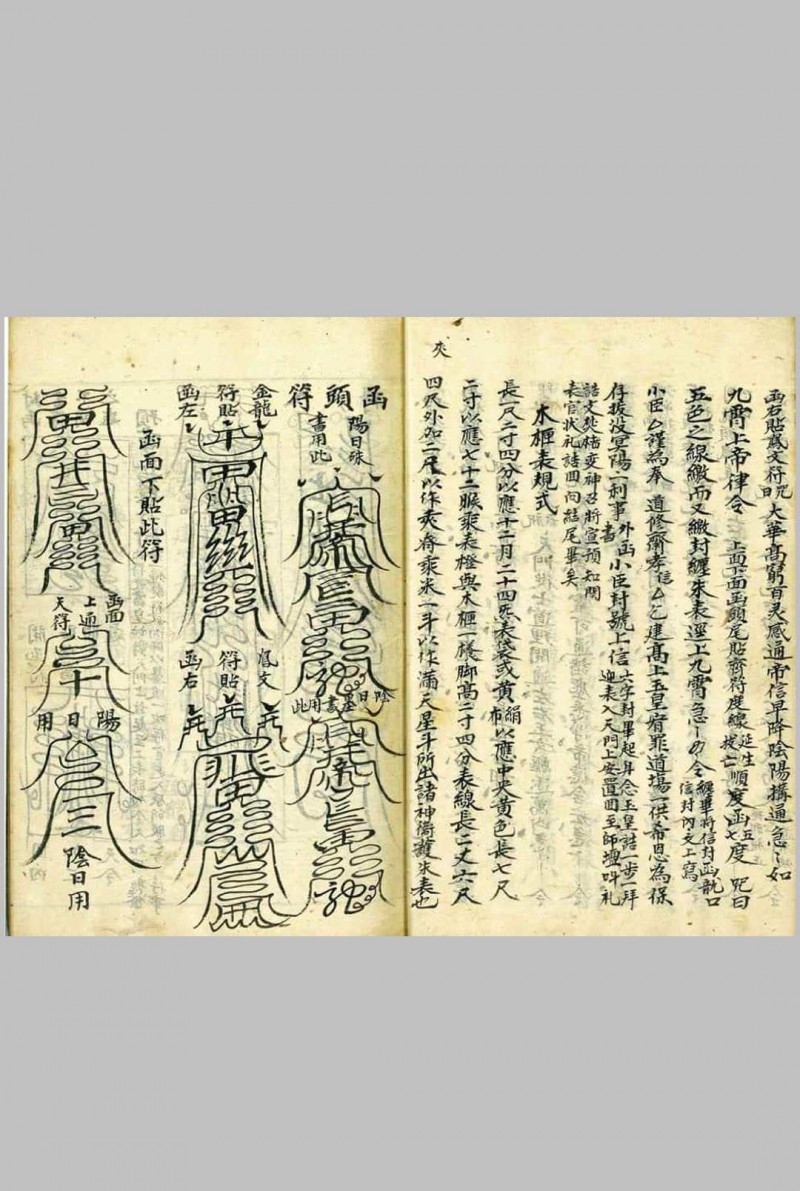 函右貼鳳文符咒曰大華高窮百灵感通帝信早降陰陽構通急〻如
九霄上帝律令 上面下面函頭尾貼齊符度線延生拔亡順度函五七度 咒曰
五色之線繳而又繳封纏朱表運上九霄急〻如令 纏畢將信封函龍口信封內文上寫
小臣厶謹為奉 道修齋孝信厶乙建高上玉皇宥罪道場一供希恩為保
存拔没冥陽一利事 外函書小臣封號上信 六字封畢起身念玉皇誥一步一拜迎表入天門上安置回至師壇叫礼
誥文 變神召將宣預知関
表官狀礼誥回向結尾畢矣
木柜表規式
長一尺二寸四分以應十二月二十四炁表袋或黄絹布以應中央黄色長七尺
二寸以應七十二候乘表橙與木柜一樣脚高二寸四分表線長二丈六尺
四尺外加二尾以作夾 乘米一斗以作滿天星斗所出諸神衛護朱表也
夾
函頭符
陽日硃書用此
陰日墨書用此
金龍符貼函左
鳳文符貼函右
函面下貼此符
函面上通天符
陽日用
陰日用